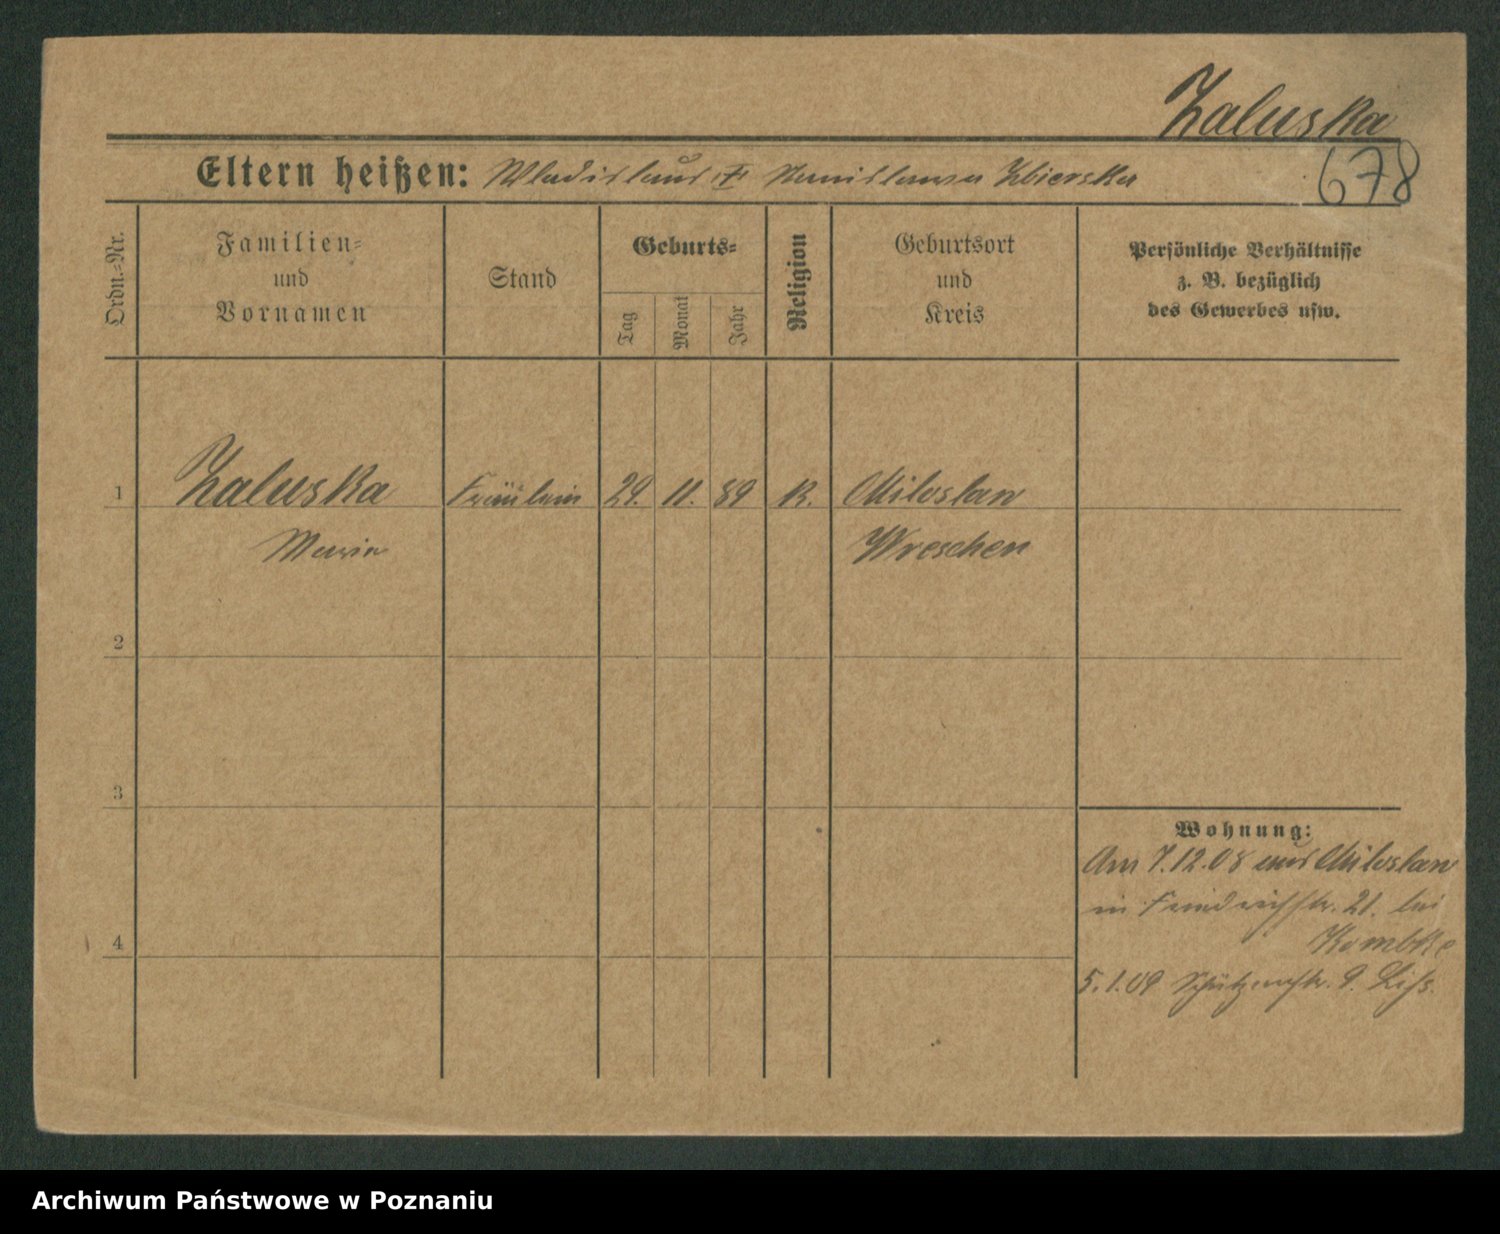 Zaluska
678
Eltern heißen: Wladislaus † Stanislawa Zbierska
Ordn.-Nr.
Familien-
und
Vornamen
Stand
Geburts-
Tag
Monat
Jahr
Religion
Geburtsort
und
Kreis
Persönliche Verhältnisse
z. B. bezüglich
des Gewerbes usw.
1 Zaluska Fräulein 29. 11. 89 K. Miloslaw
Maria Wreschen
2
3
Wohnung:
Am 7.12.08 aus Miloslaw
in Friedrichstr. 21. bei
4
5.1.09 Schützenstr. 9.
Archiwum Państwowe w Poznaniu